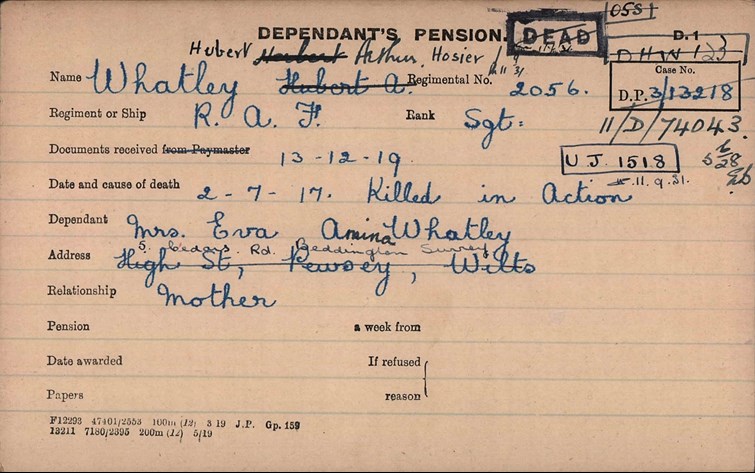 DEPENDANT'S PENSION. DEAD 055/ D.1
Hubert Herbert Arthur Hosier DHW 123
Name Whatley Hubert A. Regimental No. 2056. Case No. D.P. 3/13218
Regiment or Ship R. A. F. Rank Sgt: 11/D/74043.
Documents received from Paymaster 13-12-19. U.J. 1518
Date and cause of death 2-7-17. Killed in Action 11.9.31.
Dependant Mrs. Eva Amina Whatley
5. Cedars Rd. Beddington Surrey
Address High St, Pewsey, Wilts
Relationship Mother
Pension a week from
Date awarded If refused
Papers reason
F12293 47401/2553 100m (12) 3 19 J.P. Gp. 159
13211 7180/2395 200m (12) 5/19